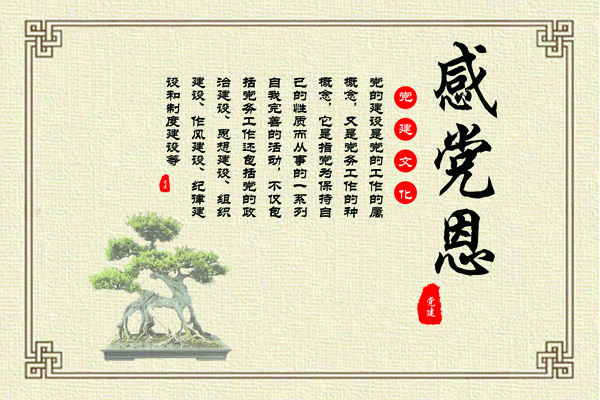 感党恩
党建
党建文化
党的建设是党的工作的属
概念，又是党务工作的种
概念，它是指党为保持自
己的性质而从事的一系列
自我完善的活动，不仅包
括党务工作还包括党的政
治建设、思想建设、组织
建设、作风建设、纪律建
设和制度建设等